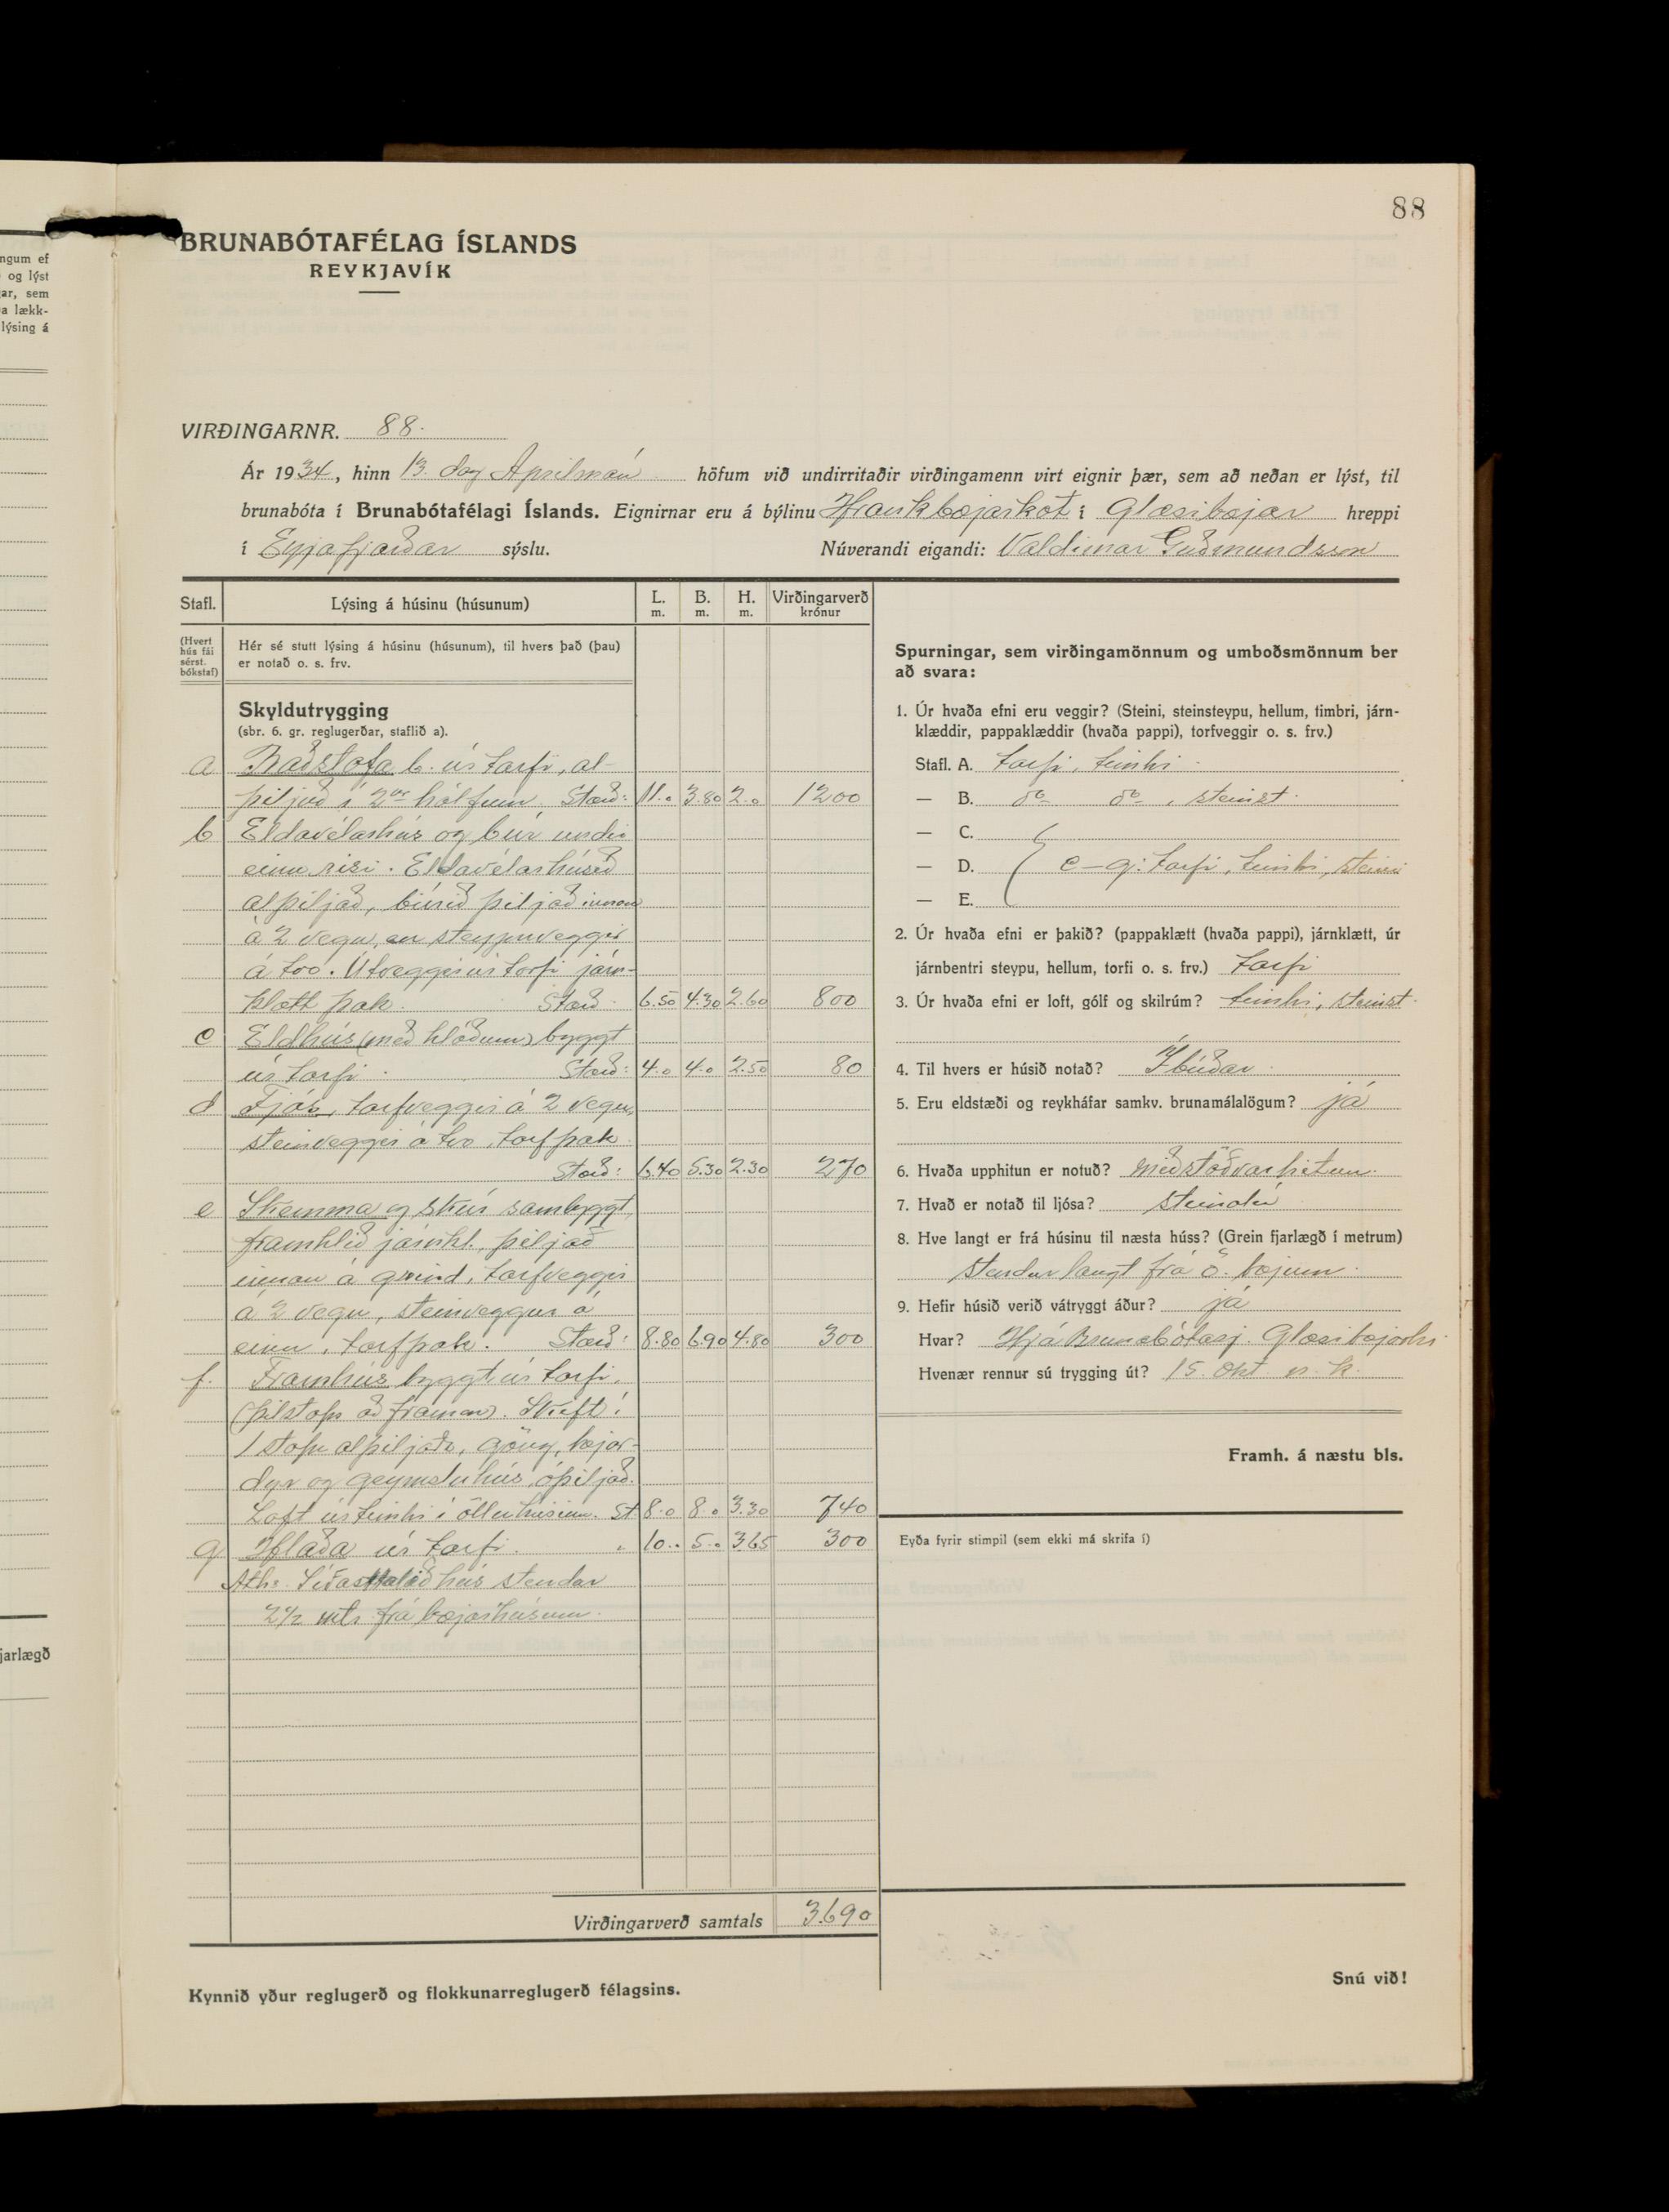 88
BRUNABÓTAFÉLAG ÍSLANDS
REYKJAVÍK
ngum ef
og lýst
ar, sem
a lækk-
lýsing á
jarlægð
VIRÐINGARNR. 88.
Ár 1934, hinn 13. dag Aprilmán höfum við undirritaðir virðingamenn virt eignir þær, sem að neðan er lýst, til
brunabóta í Brunabótafélagi Íslands. Eignirnar eru á býlinu Hraukbæjarkot í Glæsibæjar hreppi
í Eyjafjarðar sýslu. Núverandi eigandi: Valdimar Guðmundsson
Stafl. Lýsing á húsinu (húsunum) L. m. B. m. H. m. Virðingarverð krónur
(Hvert hús fái sérst. bókstaf)
Hér sé stutt lýsing á húsinu (húsunum), til hvers það (þau)
er notað o. s. frv.
Skyldutrygging
(sbr. 6. gr. reglugerðar, staflið a).
a Baðstofa b. úr torfi, al-
þiljuð í 2ur hólfum. Stærð: 11.0 3.80 2.0 1200
b Eldavélarhús og búr undir
einu risi. Eldavélarhúsið
alþiljað, búrið þiljað innan
á 2 vegu, en steypuveggir
á tvo. Útveggir úr torfi járn-
klætt þak. Stærð 6.50 4.30 2.60 800
c Eldhús (með hlóðum) byggt
úr torfi. Stærð: 4.0 4.0 2.50 80
d Fjós, torfveggir á 2 vegu,
steinveggir á tvo, torfþak
Stærð: 6.40 5.30 2.30 270
e Skemma og skúr sambyggt,
framhlið járnkl., þiljað
innan á grind, torfveggir
á 2 vegu, steinveggur á
einn, torfþak. Stærð: 8.80 6.90 4.80 300
f. Framhús byggt úr torfi.
(þilstafn að framan). Skift í
1 stofu alþiljaða, göng, bæjar-
dyr og geymsluhús, óþiljað.
Loft úr timbri í öllu húsinu. St. 8.0 8.0 3.30 740
g Hlaða úr torfi. " 10.. 5.0 3.65 300
Ath: Síðasttalið hús stendur
2 1/2 mtr frá bæjarhúsum.
Virðingarverð samtals 3.690
Kynnið yður reglugerð og flokkunarreglugerð félagsins.
Spurningar, sem virðingamönnum og umboðsmönnum ber
að svara:
1. Úr hvaða efni eru veggir? (Steini, steinsteypu, hellum, timbri, járn-
klæddir, pappaklæddir (hvaða pappi), torfveggir o. s. frv.)
Stafl. A. torfi, timbri
— B. do do, steinst.
— C.
— D. c–g: torfi, timbri, steini
— E.
2. Úr hvaða efni er þakið? (pappaklætt (hvaða pappi), járnklætt, úr
járnbentri steypu, hellum, torfi o. s. frv.) torfi
3. Úr hvaða efni er loft, gólf og skilrúm? timbri, steinst.
4. Til hvers er húsið notað? Íbúðar
5. Eru eldstæði og reykháfar samkv. brunamálalögum? já
6. Hvaða upphitun er notuð? miðstöðvarhitun
7. Hvað er notað til ljósa? steinolía
8. Hve langt er frá húsinu til næsta húss? (Grein fjarlægð í metrum)
stendur langt frá ö. bæjum.
9. Hefir húsið verið vátryggt áður? já
Hvar? Hjá Brunabótasj. Glæsibæjarhr.
Hvenær rennur sú trygging út? 15. Okt n. k.
Framh. á næstu bls.
Eyða fyrir stimpil (sem ekki má skrifa í)
Snú við!